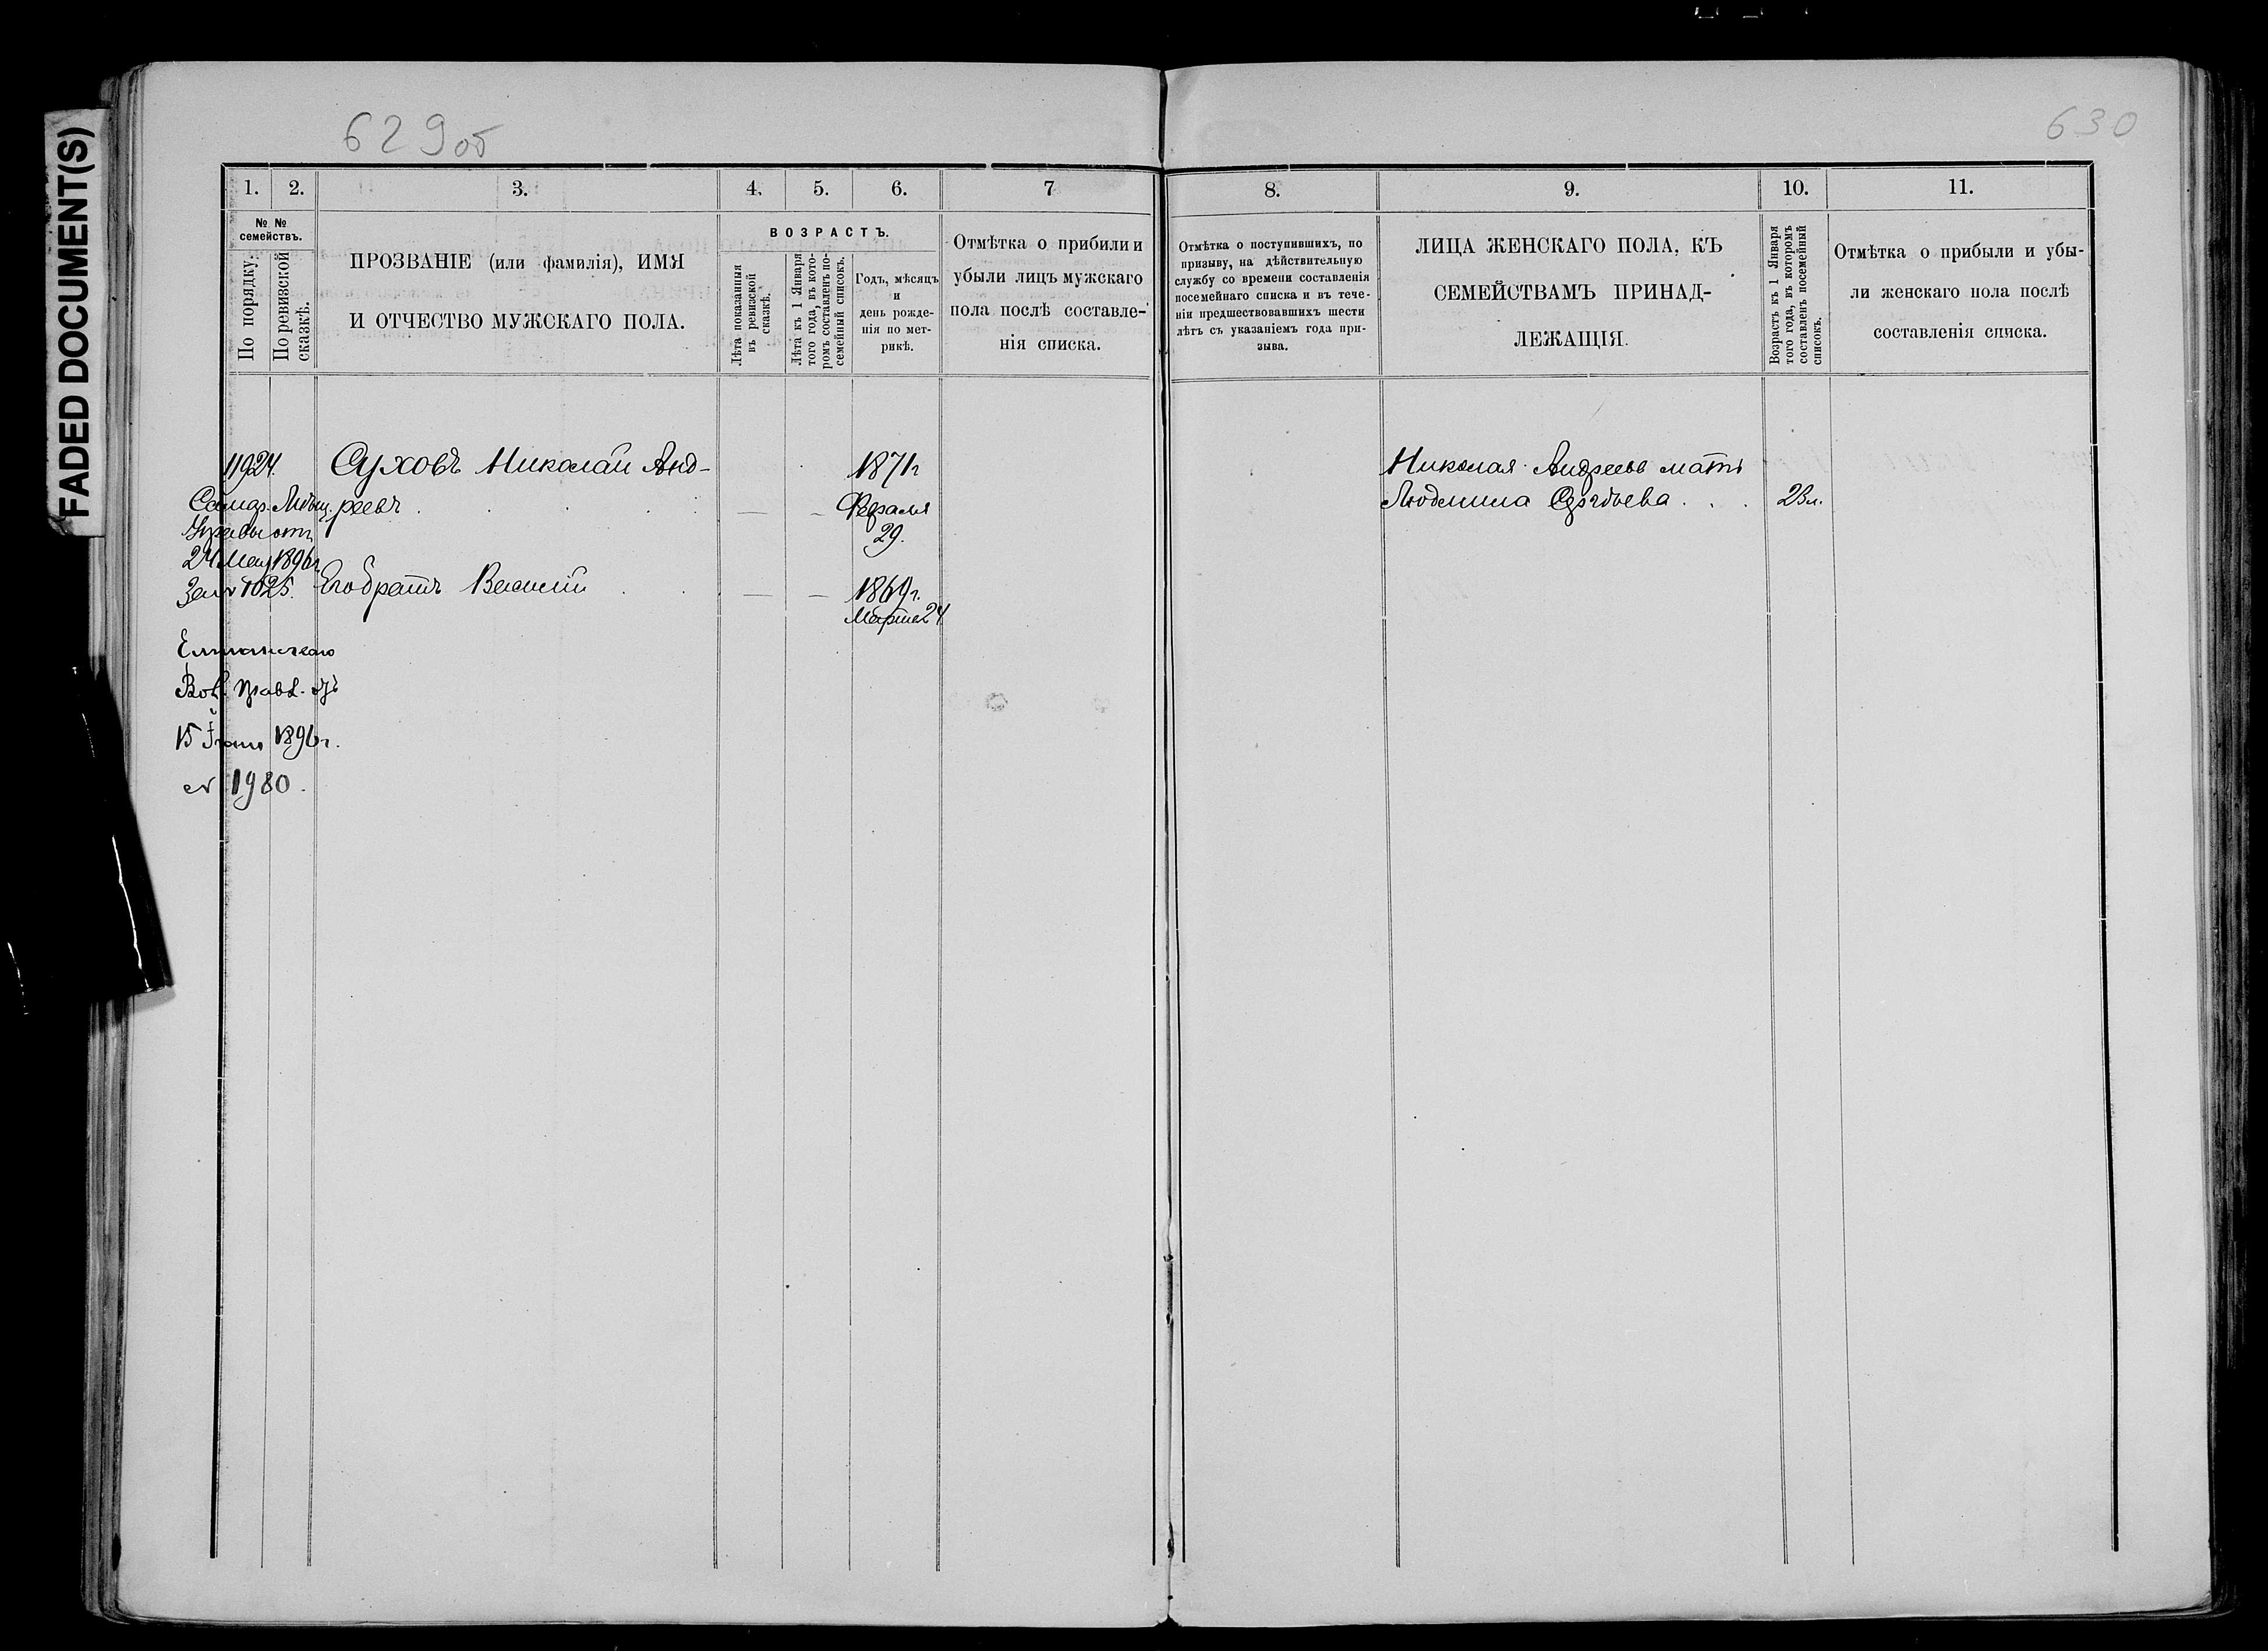 FADED DOCUMENT(S)
629об
630
1. 2. 3. 4. 5. 6. 7
8. 9. 10. 11.
№ № семействъ.
По порядку.
По ревизской сказкѣ.
ПРОЗВАНІЕ (или фамилія), ИМЯ
И ОТЧЕСТВО МУЖСКАГО ПОЛА.
ВОЗРАСТЪ.
Лѣта показанныя
въ ревизской
сказкѣ.
Лѣта къ 1 Января
того года, въ кото-
ромъ составленъ по-
семейный списокъ.
Годъ, мѣсяцъ
и
день рожде-
нія по мет-
рикѣ.
Отмѣтка о прибыли и
убыли лицъ мужскаго
пола послѣ составле-
нія списка.
Отмѣтка о поступившихъ, по
призыву, на дѣйствительную
службу со времени составленія
посемейнаго списка и въ тече-
ніи предшествовавшихъ шести
лѣтъ съ указаніемъ года при-
зыва.
ЛИЦА ЖЕНСКАГО ПОЛА, КЪ
СЕМЕЙСТВАМЪ ПРИНАД-
ЛЕЖАЩІЯ.
Возрастъ къ 1 Января
того года, въ которомъ
составленъ посемейный
списокъ.
Отмѣтка о прибыли и убы-
ли женскаго пола послѣ
составленія списка.
11924. Суховъ Николай Анд-
реевъ
1871г
Февраля
29.
Самар. Мѣщ.
Управы отъ
24 Мая 1896г.
За № 1025.
Его братъ Василій
1869г.
Марта 24
Вол. Правл. отъ
15 Іюня 1896г.
№ 1980.
Николая Андреева мать
Людмила 23л.